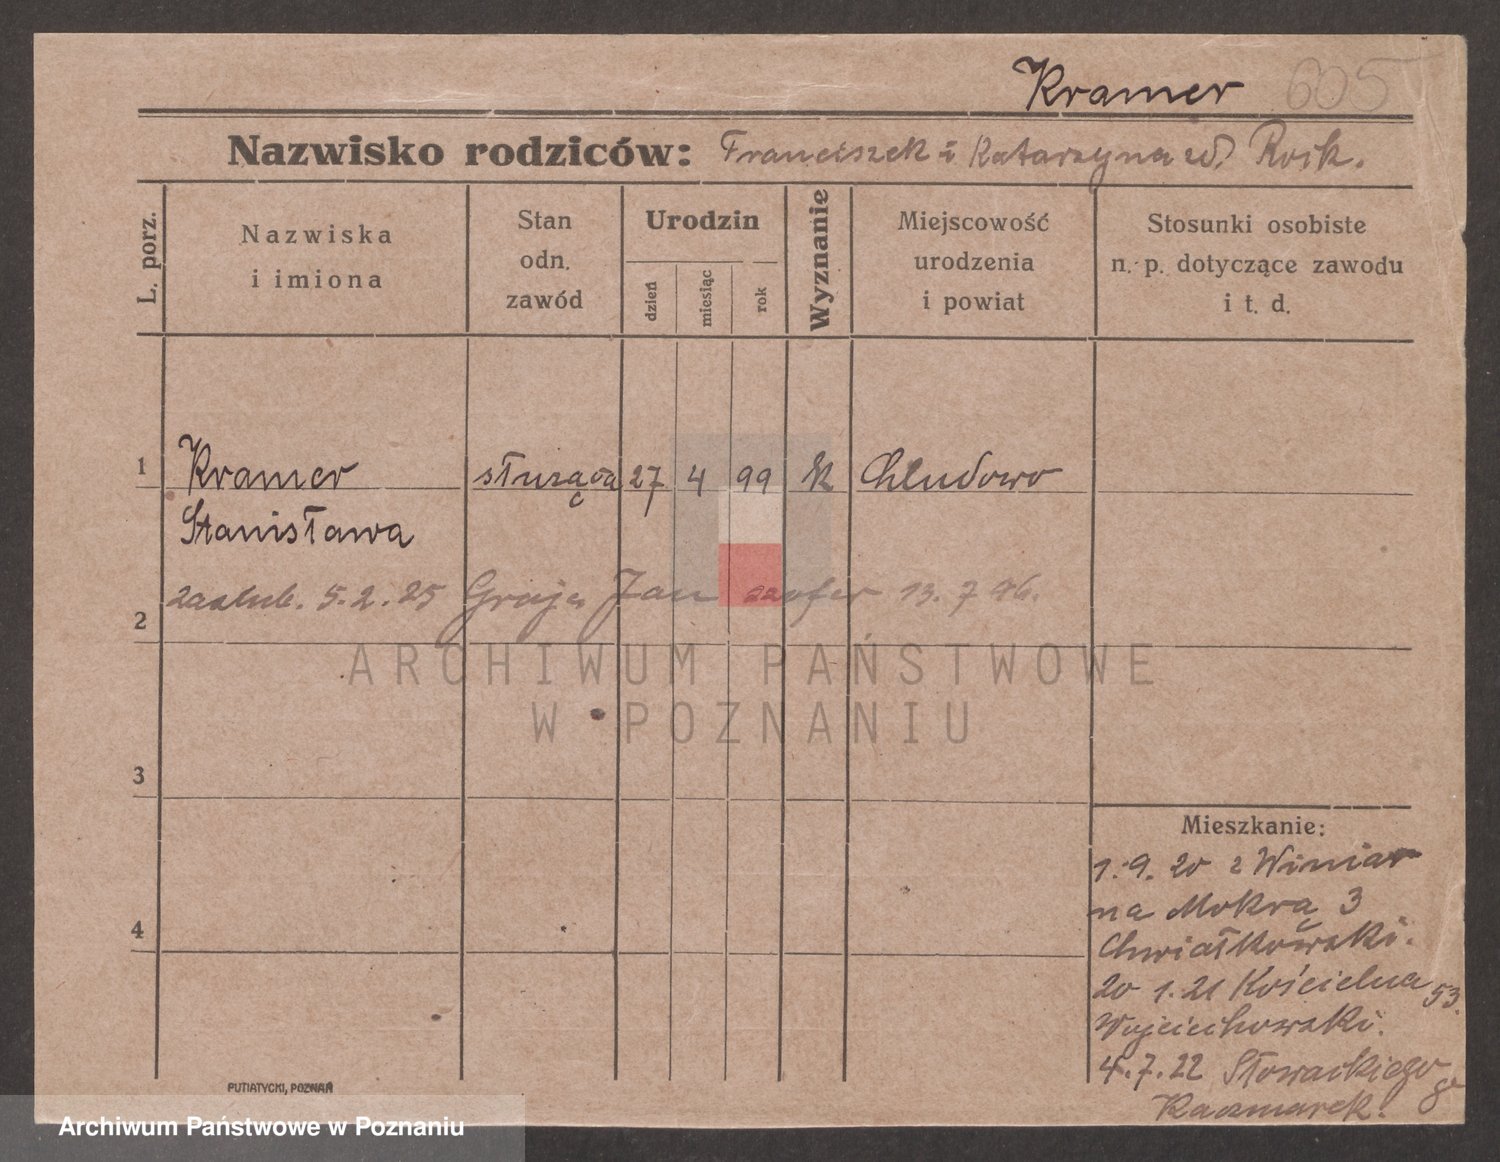 Kramer 605
Nazwisko rodziców: Franciszek i Katarzyna zd. Rosk.
L. porz.
Nazwiska
i imiona
Stan
odn.
zawód
Urodzin
dzień
miesiąc
rok
Wyznanie
Miejscowość
urodzenia
i powiat
Stosunki osobiste
n. p. dotyczące zawodu
i t. d.
1 Kramer służąca 27 4 99 K Chludowo
Stanisława
zaślub. 5.2.25 Jan szofer 13.7 96.
2
ARCHIWUM PAŃSTWOWE
W POZNANIU
3
4
Mieszkanie:
1.9.20 z Winiar
na Mokrą 3
Chwiałkowski.
20 1.21 Kościelna 53.
Wojciechowski.
4.7.22 Słowackiego
Kaczmarek.
PUTIATYCKI, POZNAŃ
Archiwum Państwowe w Poznaniu